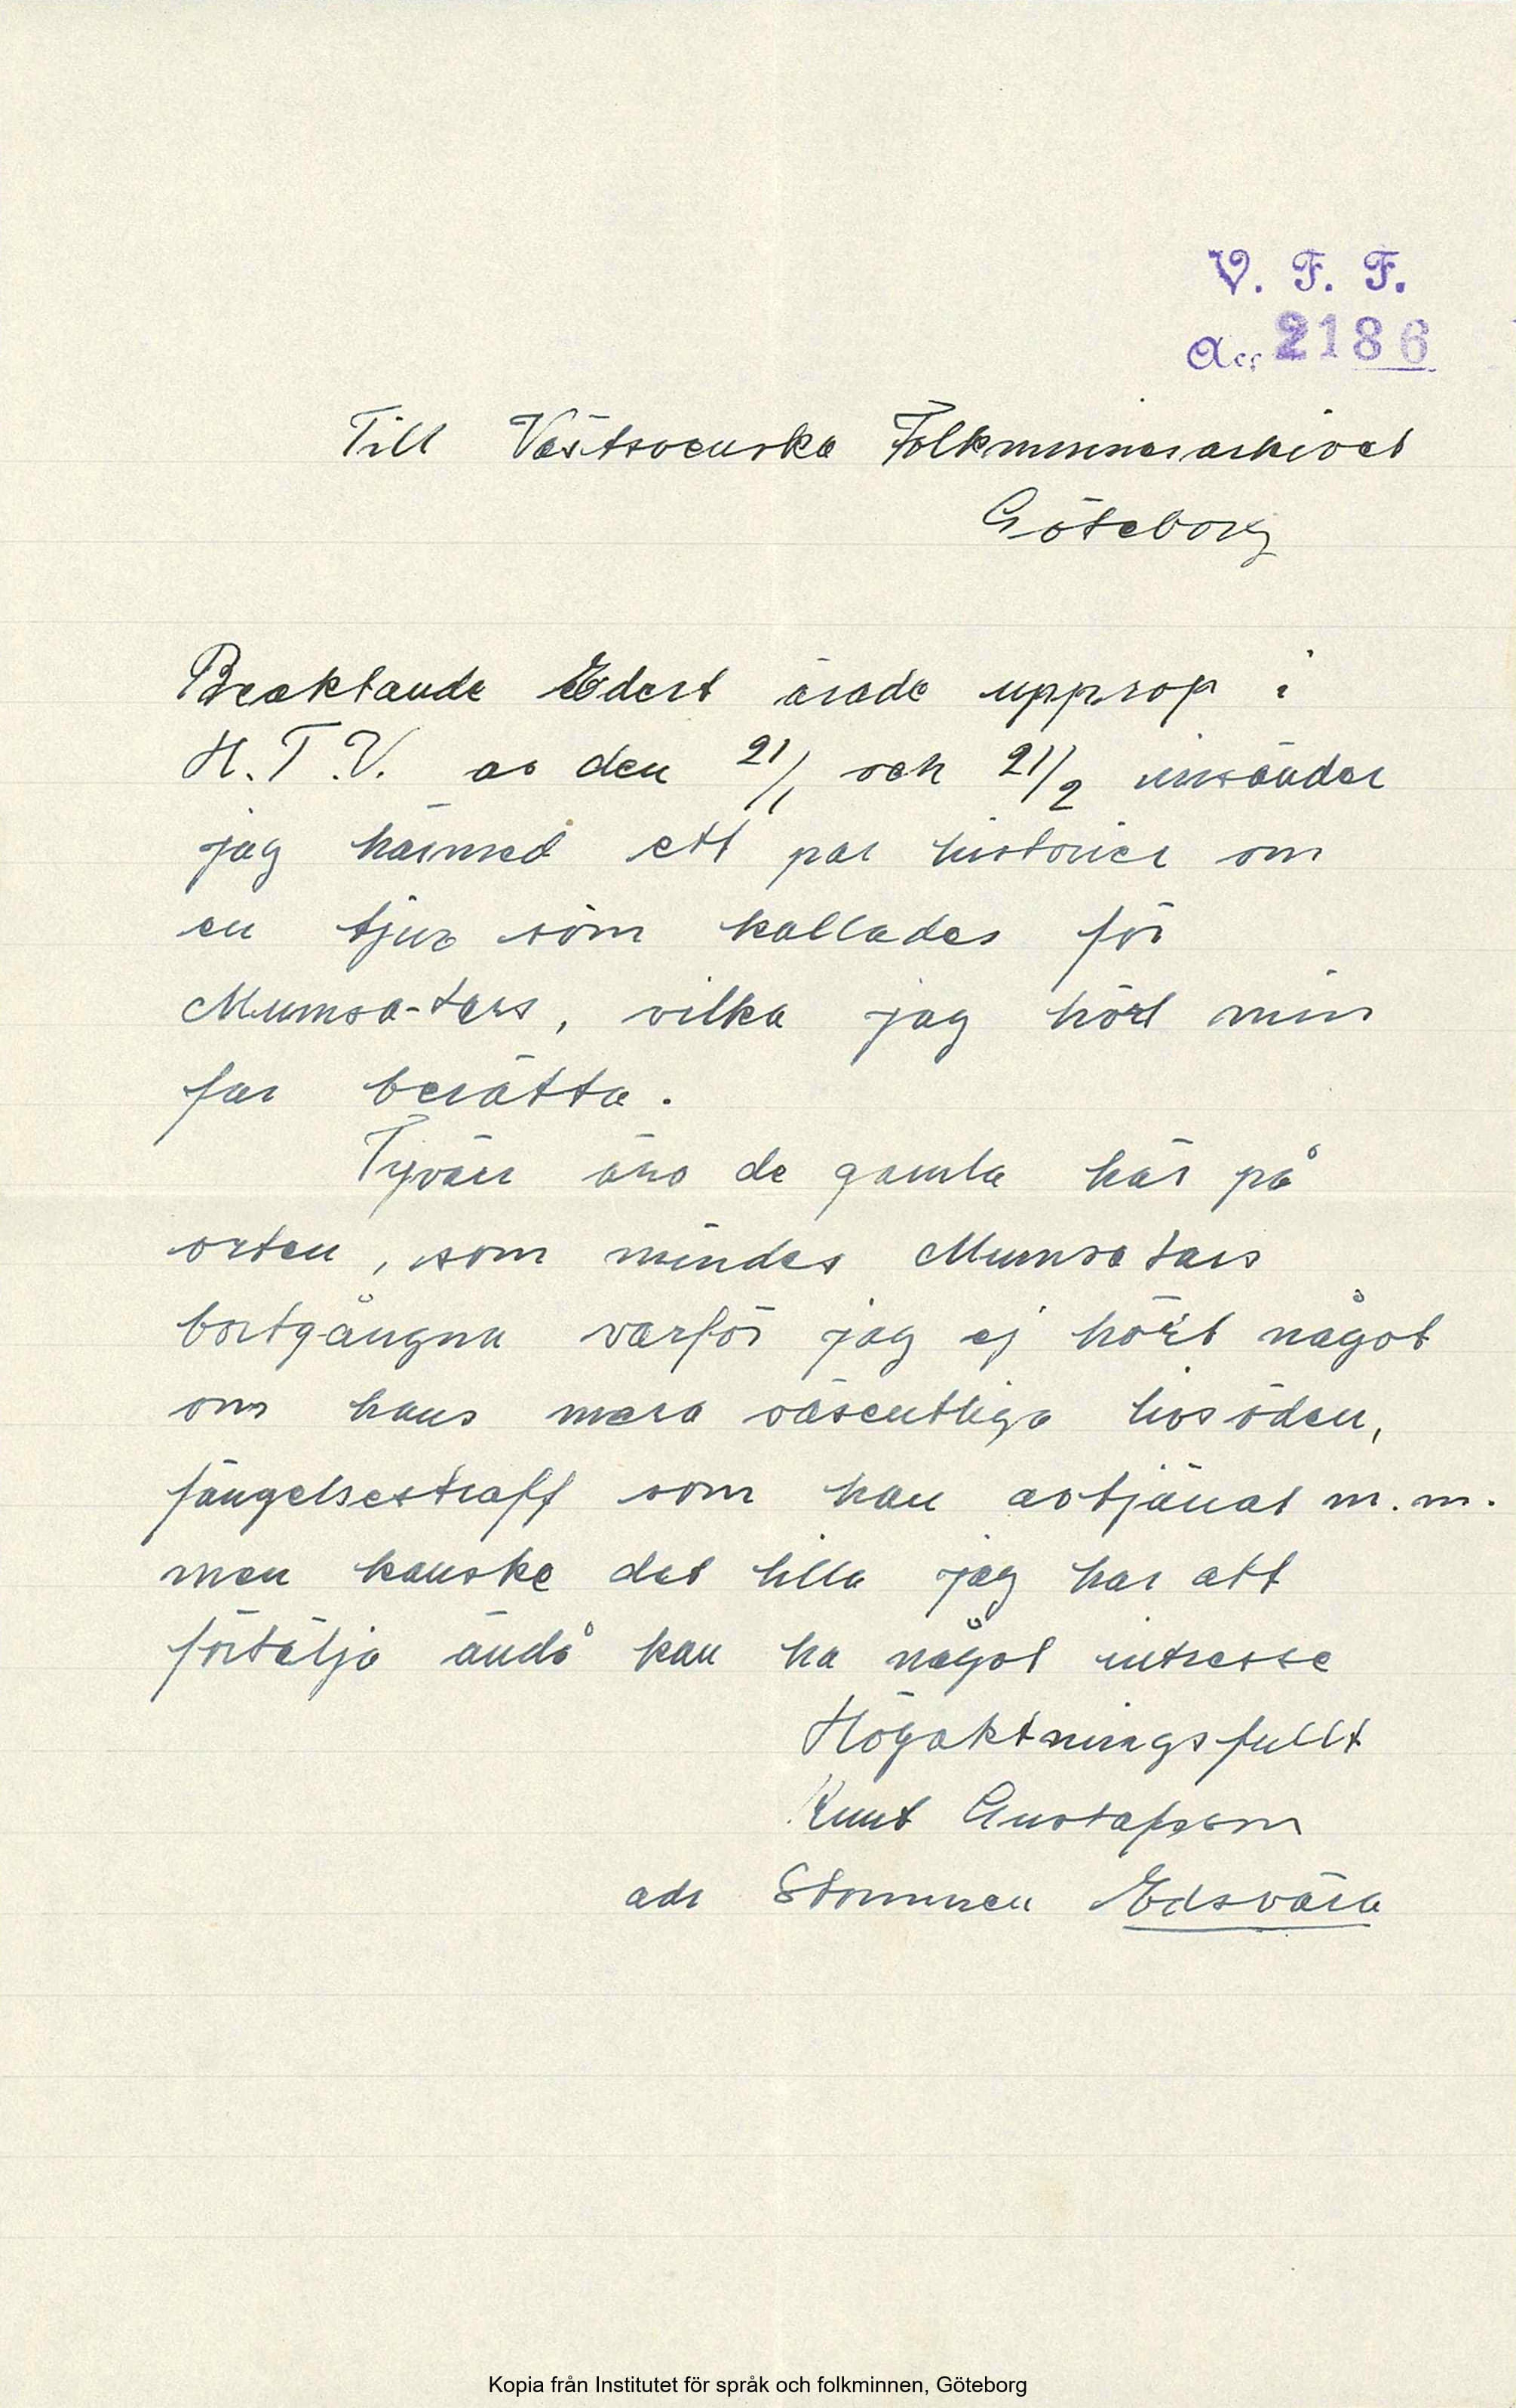 V. F. F.
Acc 2186
Till Västsvenska Folkminnesarkivet
Göteborg
Beaktande Edert ärade upprop i
H.T.V. av den 21/1 och 21/2 insänder
jag härmed ett par historier om
en tjuv som kallades för
Mumsa-Lars, vilka jag hört min
far berätta.
Tyvärr äro de gamla här på
orten, som mindes Mumsa Lars
bortgångna varför jag ej hört något
om hans mera väsentliga livsöden,
fängelsestraff som han avtjänat m.m.
men kanske det lilla jag har att
förtälja ändå kan ha något intresse
Högaktningsfullt
Knut Gustafsson
adr Stommen Edsvära
Kopia från Institutet för språk och folkminnen, Göteborg